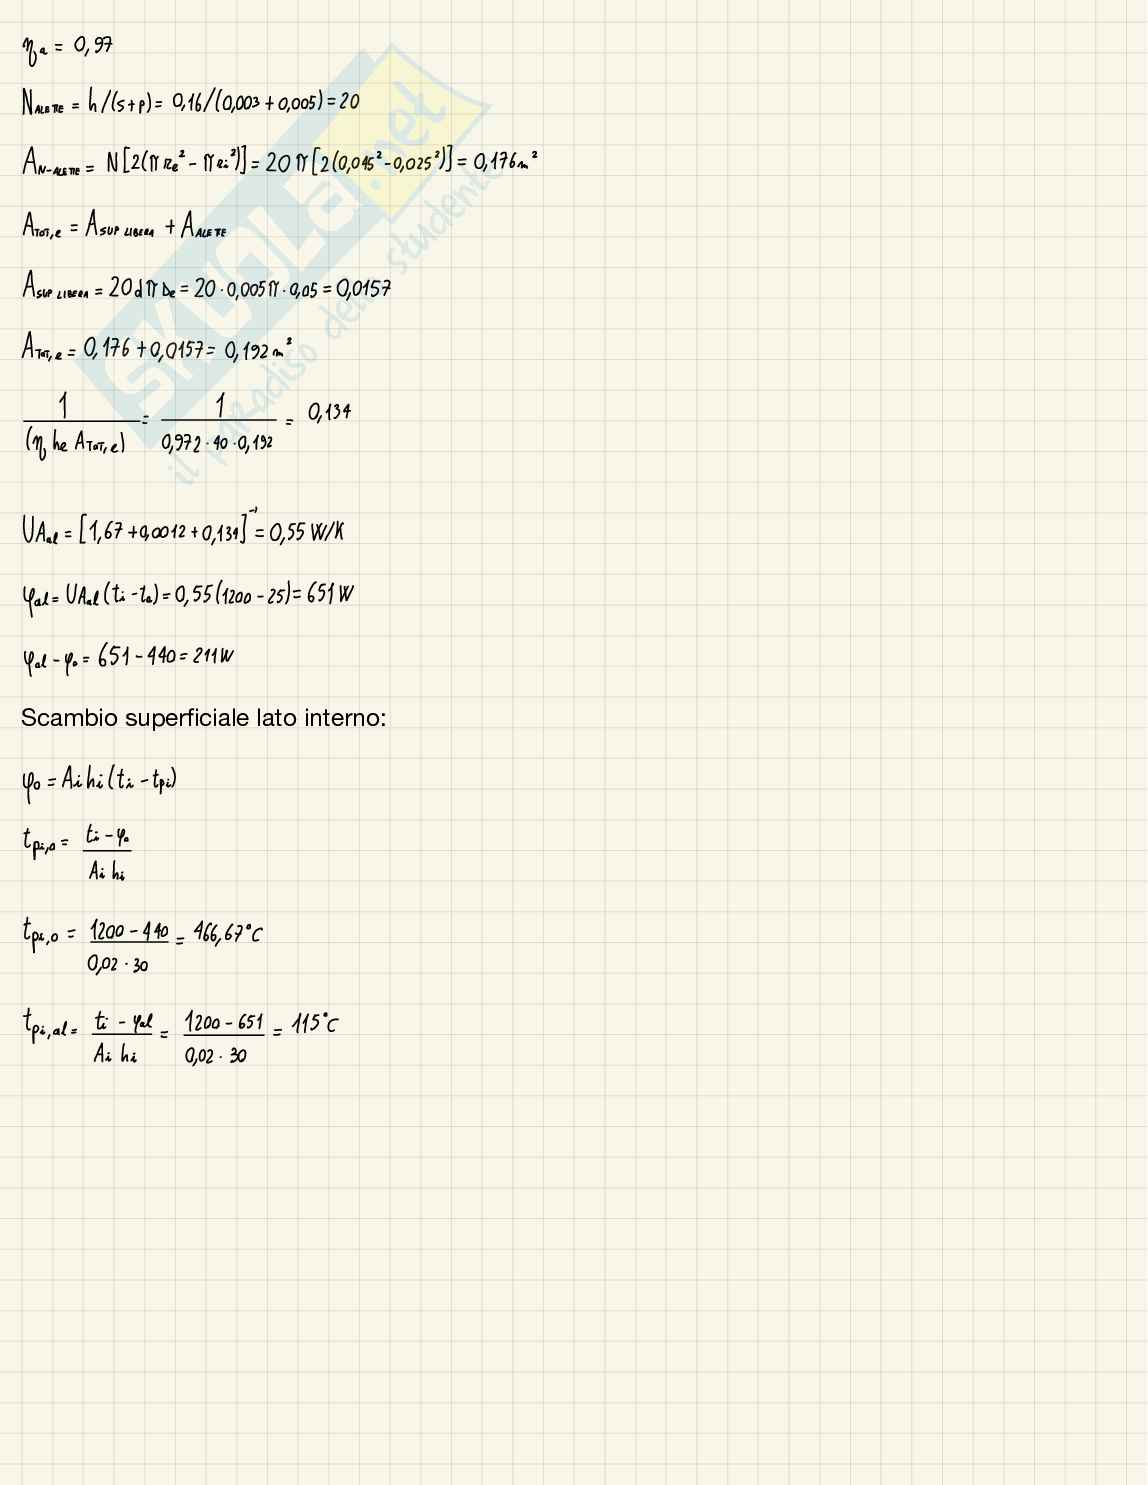 ηa = 0,97
N ALETTE = h/(s+p) = 0,16/(0,003 + 0,005) = 20
A N-ALETTE = N[2(π re² - π ri²)] = 20 π [2(0,045² - 0,025²)] = 0,176 m²
A TOT,e = A SUP LIBERA + A ALETTE
A SUP LIBERA = 20 d π De = 20 · 0,005 π · 0,05 = 0,0157
A TOT,e = 0,176 + 0,0157 = 0,192 m²
1/(η he A TOT,e) = 1/(0,972 · 40 · 0,192) = 0,134
UA al = [1,67 + 0,0012 + 0,134]⁻¹ = 0,55 W/K
φal = UA al (ti - ta) = 0,55 (1200 - 25) = 651 W
φal - φo = 651 - 440 = 211 W
Scambio superficiale lato interno:
φo = Ai hi (ti - tpi)
tpi,o = ti - φo / Ai hi
tpi,o = 1200 - 440 / 0,02 · 30 = 466,67°C
tpi,al = ti - φal / Ai hi = 1200 - 651 / 0,02 · 30 = 115°C
SKUOLA.net
il paradiso dello studente